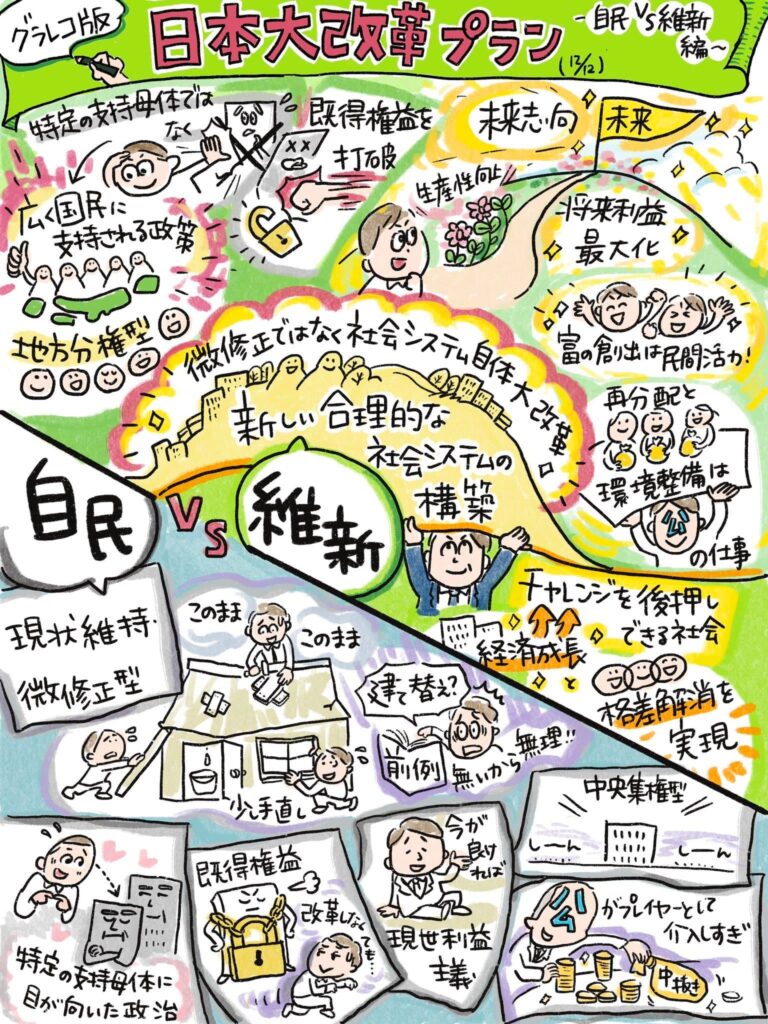 グラレコ版
日本大改革プラン
-自民VS維新
編~
(12/12)
特定の支持母体では
なく
広く国民に
支持される政策
地方分権型
既得権益を
打破
未来志向
未来
生産性向上
将来利益
最大化
富の創出は民間活力!
再分配と
環境整備は
公
の仕事
微修正ではなく社会システム自体大改革
新しい合理的な
社会システムの
構築
チャレンジを後押し
できる社会
経済成長
と
格差解消を
実現
自民
VS
維新
現状維持・
微修正型
このまま
このまま
少し手直し
建て替え?
前例
無いから無理!!
特定の支持母体に
目が向いた政治
既得権益
改革しなくても…
今が
良ければ
現世利益
主義
中央集権型
しーん
しーん
公
がプレイヤーとして
介入しすぎ
中抜き